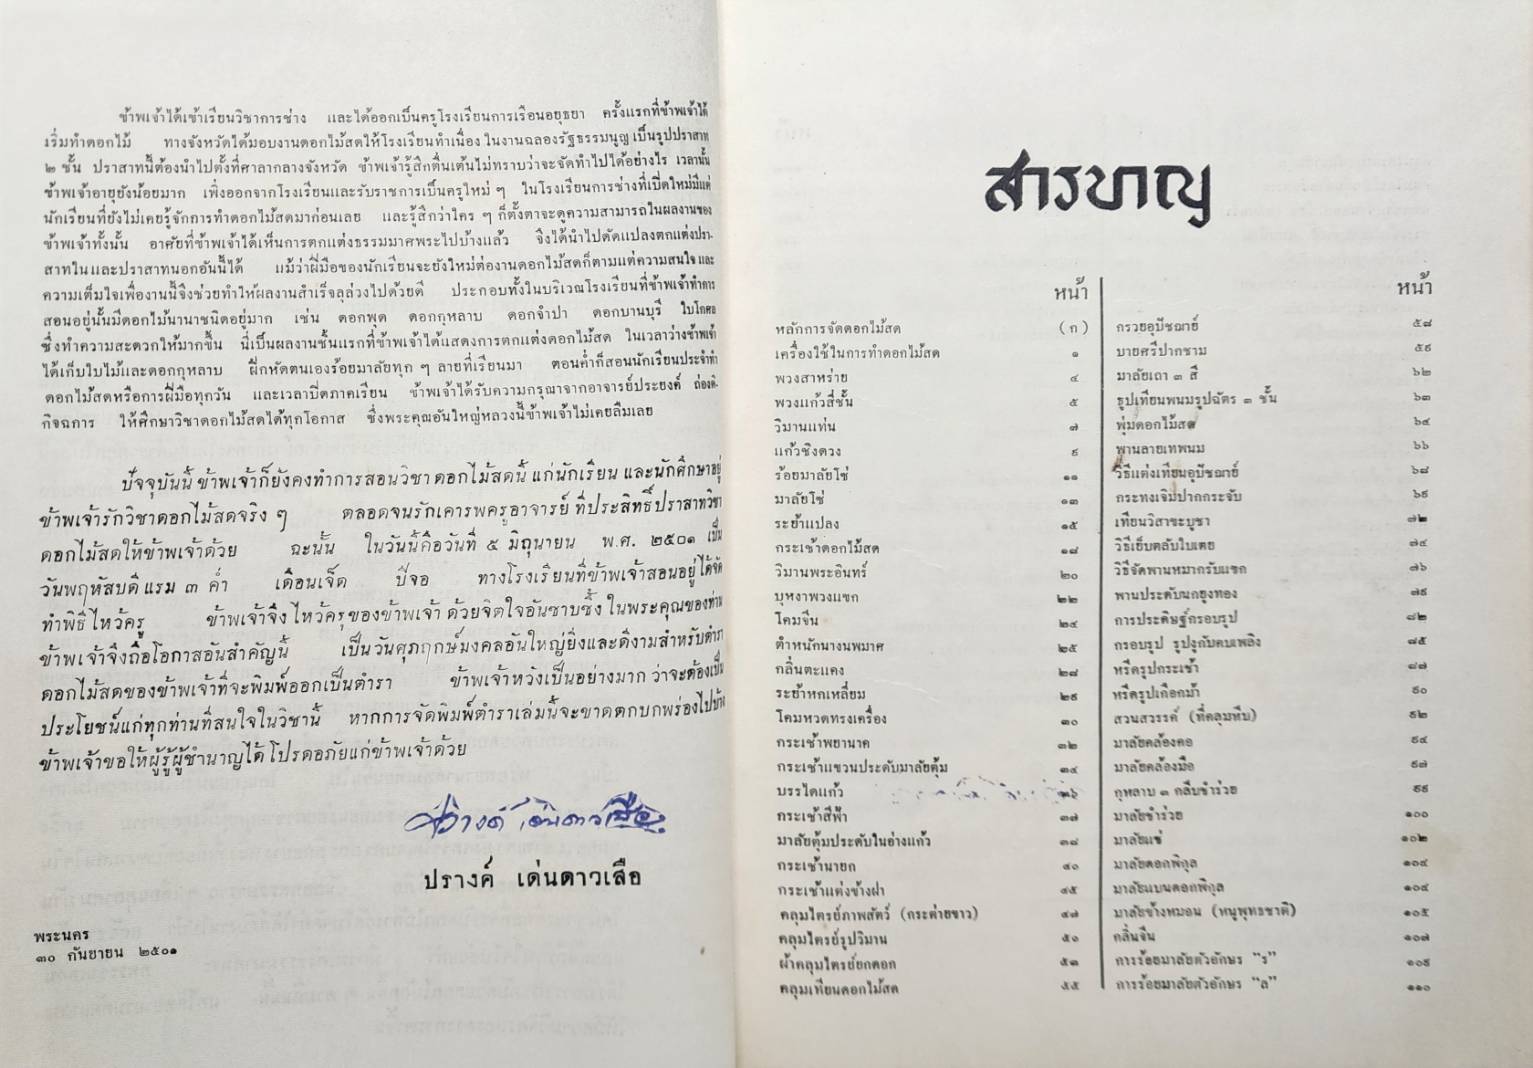 ข้าพเจ้าได้เข้าเรียนวิชาการช่าง และได้ออกเป็นครูโรงเรียนการเรือนอยุธยา ครั้งแรกที่ข้าพเจ้าได้
เริ่มทำดอกไม้ ทางจังหวัดได้มอบงานดอกไม้สดให้โรงเรียนทำเนื่อง ในงานฉลองรัฐธรรมนูญ เป็นรูปปราสาท
๒ ชั้น ปราสาทนี้ต้องนำไปตั้งที่ศาลากลางจังหวัด ข้าพเจ้ารู้สึกตื่นเต้นไม่ทราบว่าจะจัดทำไปได้อย่างไร เวลานั้น
ข้าพเจ้าอายุยังน้อยมาก เพิ่งออกจากโรงเรียนและรับราชการเป็นครูใหม่ ๆ ในโรงเรียนการช่างที่เปิดใหม่มีแต่
นักเรียนที่ยังไม่เคยรู้จักการทำดอกไม้สดมาก่อนเลย และรู้สึกว่าใคร ๆ ก็ตั้งตาจะดูความสามารถในผลงานของ
ข้าพเจ้าทั้งนั้น อาศัยที่ข้าพเจ้าได้เห็นการตกแต่งธรรมมาศพระไปบ้างแล้ว จึงได้นำไปดัดแปลงตกแต่งปรา-
สาทในและปราสาทนอกอันนี้ได้ แม้ว่าฝีมือของนักเรียนจะยังใหม่ต่องานดอกไม้สดก็ตามแต่ความสนใจ และ
ความเต็มใจเพื่องานนี้จึงช่วยทำให้ผลงานสำเร็จลุล่วงไปด้วยดี ประกอบทั้งในบริเวณโรงเรียนที่ข้าพเจ้าทำการ
สอนอยู่นั้นมีดอกไม้นานาชนิดอยู่มาก เช่น ดอกพุด ดอกกุหลาบ ดอกจำปา ดอกบานบุรี ใบโกศล
ซึ่งทำความสะดวกให้มากขึ้น นี่เป็นผลงานชั้นแรกที่ข้าพเจ้าได้แสดงการตกแต่งดอกไม้สด ในเวลาว่างข้าพเจ้า
ได้เก็บใบไม้และดอกกุหลาบ ฝึกหัดตนเองร้อยมาลัยทุก ๆ ลายที่เรียนมา ตอนค่ำก็สอนนักเรียนประจำทำ
ดอกไม้สดหรือการฝีมือทุกวัน และเวลาปิดภาคเรียน ข้าพเจ้าได้รับความกรุณาจากอาจารย์ประยงค์ ถ่องดิ-
กิจฉการ ให้ศึกษาวิชาดอกไม้สดได้ทุกโอกาส ซึ่งพระคุณอันใหญ่หลวงนี้ข้าพเจ้าไม่เคยลืมเลย
ปัจจุบันนี้ ข้าพเจ้าก็ยังคงทำการสอนวิชา ดอกไม้สดนี้ แก่นักเรียน และนักศึกษาอยู่
ข้าพเจ้ารักวิชาดอกไม้สดจริง ๆ ตลอดจนรักเคารพครูอาจารย์ ที่ประสิทธิ์ปราสาทวิชา
ดอกไม้สดให้ข้าพเจ้าด้วย ฉะนั้น ในวันนี้คือวันที่ ๕ มิถุนายน พ.ศ. ๒๕๐๑ เป็น
วันพฤหัสบดี แรม ๓ ค่ำ เดือนเจ็ด ปีจอ ทางโรงเรียนที่ข้าพเจ้าสอนอยู่ได้จัด
ทำพิธีไหว้ครู ข้าพเจ้าจึง ไหว้ครุของข้าพเจ้า ด้วยจิตใจอันซาบซึ้ง ในพระคุณของท่าน
ข้าพเจ้าจึงถือโอกาสอันสำคัญนี้ เป็นวันศุภฤกษ์มงคลอันใหญ่ยิ่งและดีงามสำหรับตำรา
ดอกไม้สดของข้าพเจ้าที่จะพิมพ์ออกเป็นตำรา ข้าพเจ้าหวังเป็นอย่างมาก ว่าจะต้องเป็น
ประโยชน์แก่ทุกท่านที่สนใจในวิชานี้ หากการจัดพิมพ์ตำราเล่มนี้จะขาดตกบกพร่องไปบ้าง
ข้าพเจ้าขอให้ผู้รู้ผู้ชำนาญได้ โปรดอภัยแก่ข้าพเจ้าด้วย
ปรางค์ เด่นดาวเสือ
ปรางค์ เด่นดาวเสือ
พระนคร
๓๐ กันยายน ๒๕๐๑
สารบาญ
หน้า
หลักการจัดดอกไม้สด (ก)
เครื่องใช้ในการทำดอกไม้สด ๑
พวงสาหร่าย ๔
พวงแก้วสี่ชั้น ๕
วิมานแท่น ๗
แก้วชิงดวง ๙
ร้อยมาลัยโซ่ ๑๑
มาลัยโซ่ ๑๓
ระย้าแปลง ๑๕
กระเช้าดอกไม้สด ๑๘
วิมานพระอินทร์ ๒๐
บุหงาพวงแขก ๒๒
โคมจีน ๒๔
ตำหนักนางนพมาศ ๒๕
กลิ่นตะแคง ๒๘
ระย้าหกเหลี่ยม ๒๙
โคมหวดทรงเครื่อง ๓๐
กระเช้าพยานาค ๓๒
กระเช้าแขวนประดับมาลัยตุ้ม ๓๔
บรรไดแก้ว ๓๖
กระเช้าสีฟ้า ๓๗
มาลัยตุ้มประดับในอ่างแก้ว ๓๘
กระเช้านายก ๔๐
กระเช้าแต่งข้างฝา ๔๕
คลุมไตรย์ภาพสัตว์ (กระต่ายขาว) ๔๗
คลุมไตรย์รูปวิมาน ๕๐
ผ้าคลุมไตรย์ยกดอก ๕๓
คลุมเทียนดอกไม้สด ๕๕
หน้า
กรวยอุปัชฌาย์ ๕๘
บายศรีปากชาม ๕๙
มาลัยเถา ๓ สี ๖๒
ธูปเทียนพนมรูปฉัตร ๓ ชั้น ๖๓
พุ่มดอกไม้สด ๖๔
พานลายเทพนม ๖๖
วิธีแต่งเทียนอุปัชฌาย์ ๖๘
กระทงเจิมปากกระจับ ๖๙
เทียนวิสาขะบูชา ๗๒
วิธีเย็บตลับใบเตย ๗๔
วิธีจัดพานหมากรับแขก ๗๖
พานประดับนกยูงทอง ๗๙
การประดิษฐ์กรอบรูป ๘๒
กรอบรูป รูปงูกับคบเพลิง ๘๕
หรีดรูปกระเช้า ๘๗
หรีดรูปเกือกม้า ๙๐
สวนสวรรค์ (ที่คลุมหีบ) ๙๒
มาลัยคล้องคอ ๙๔
มาลัยคล้องมือ ๙๗
กุหลาบ ๓ กลีบชำร่วย ๙๙
มาลัยชำร่วย ๑๐๐
มาลัยแช่ ๑๐๒
มาลัยดอกพิกุล ๑๐๔
มาลัยแบนดอกพิกุล ๑๐๔
มาลัยข้างหมอน (หนูพุทธชาติ) ๑๐๕
กลิ่นจีน ๑๐๗
การร้อยมาลัยตัวอักษร “ร” ๑๐๙
การร้อยมาลัยตัวอักษร “ล” ๑๑๐